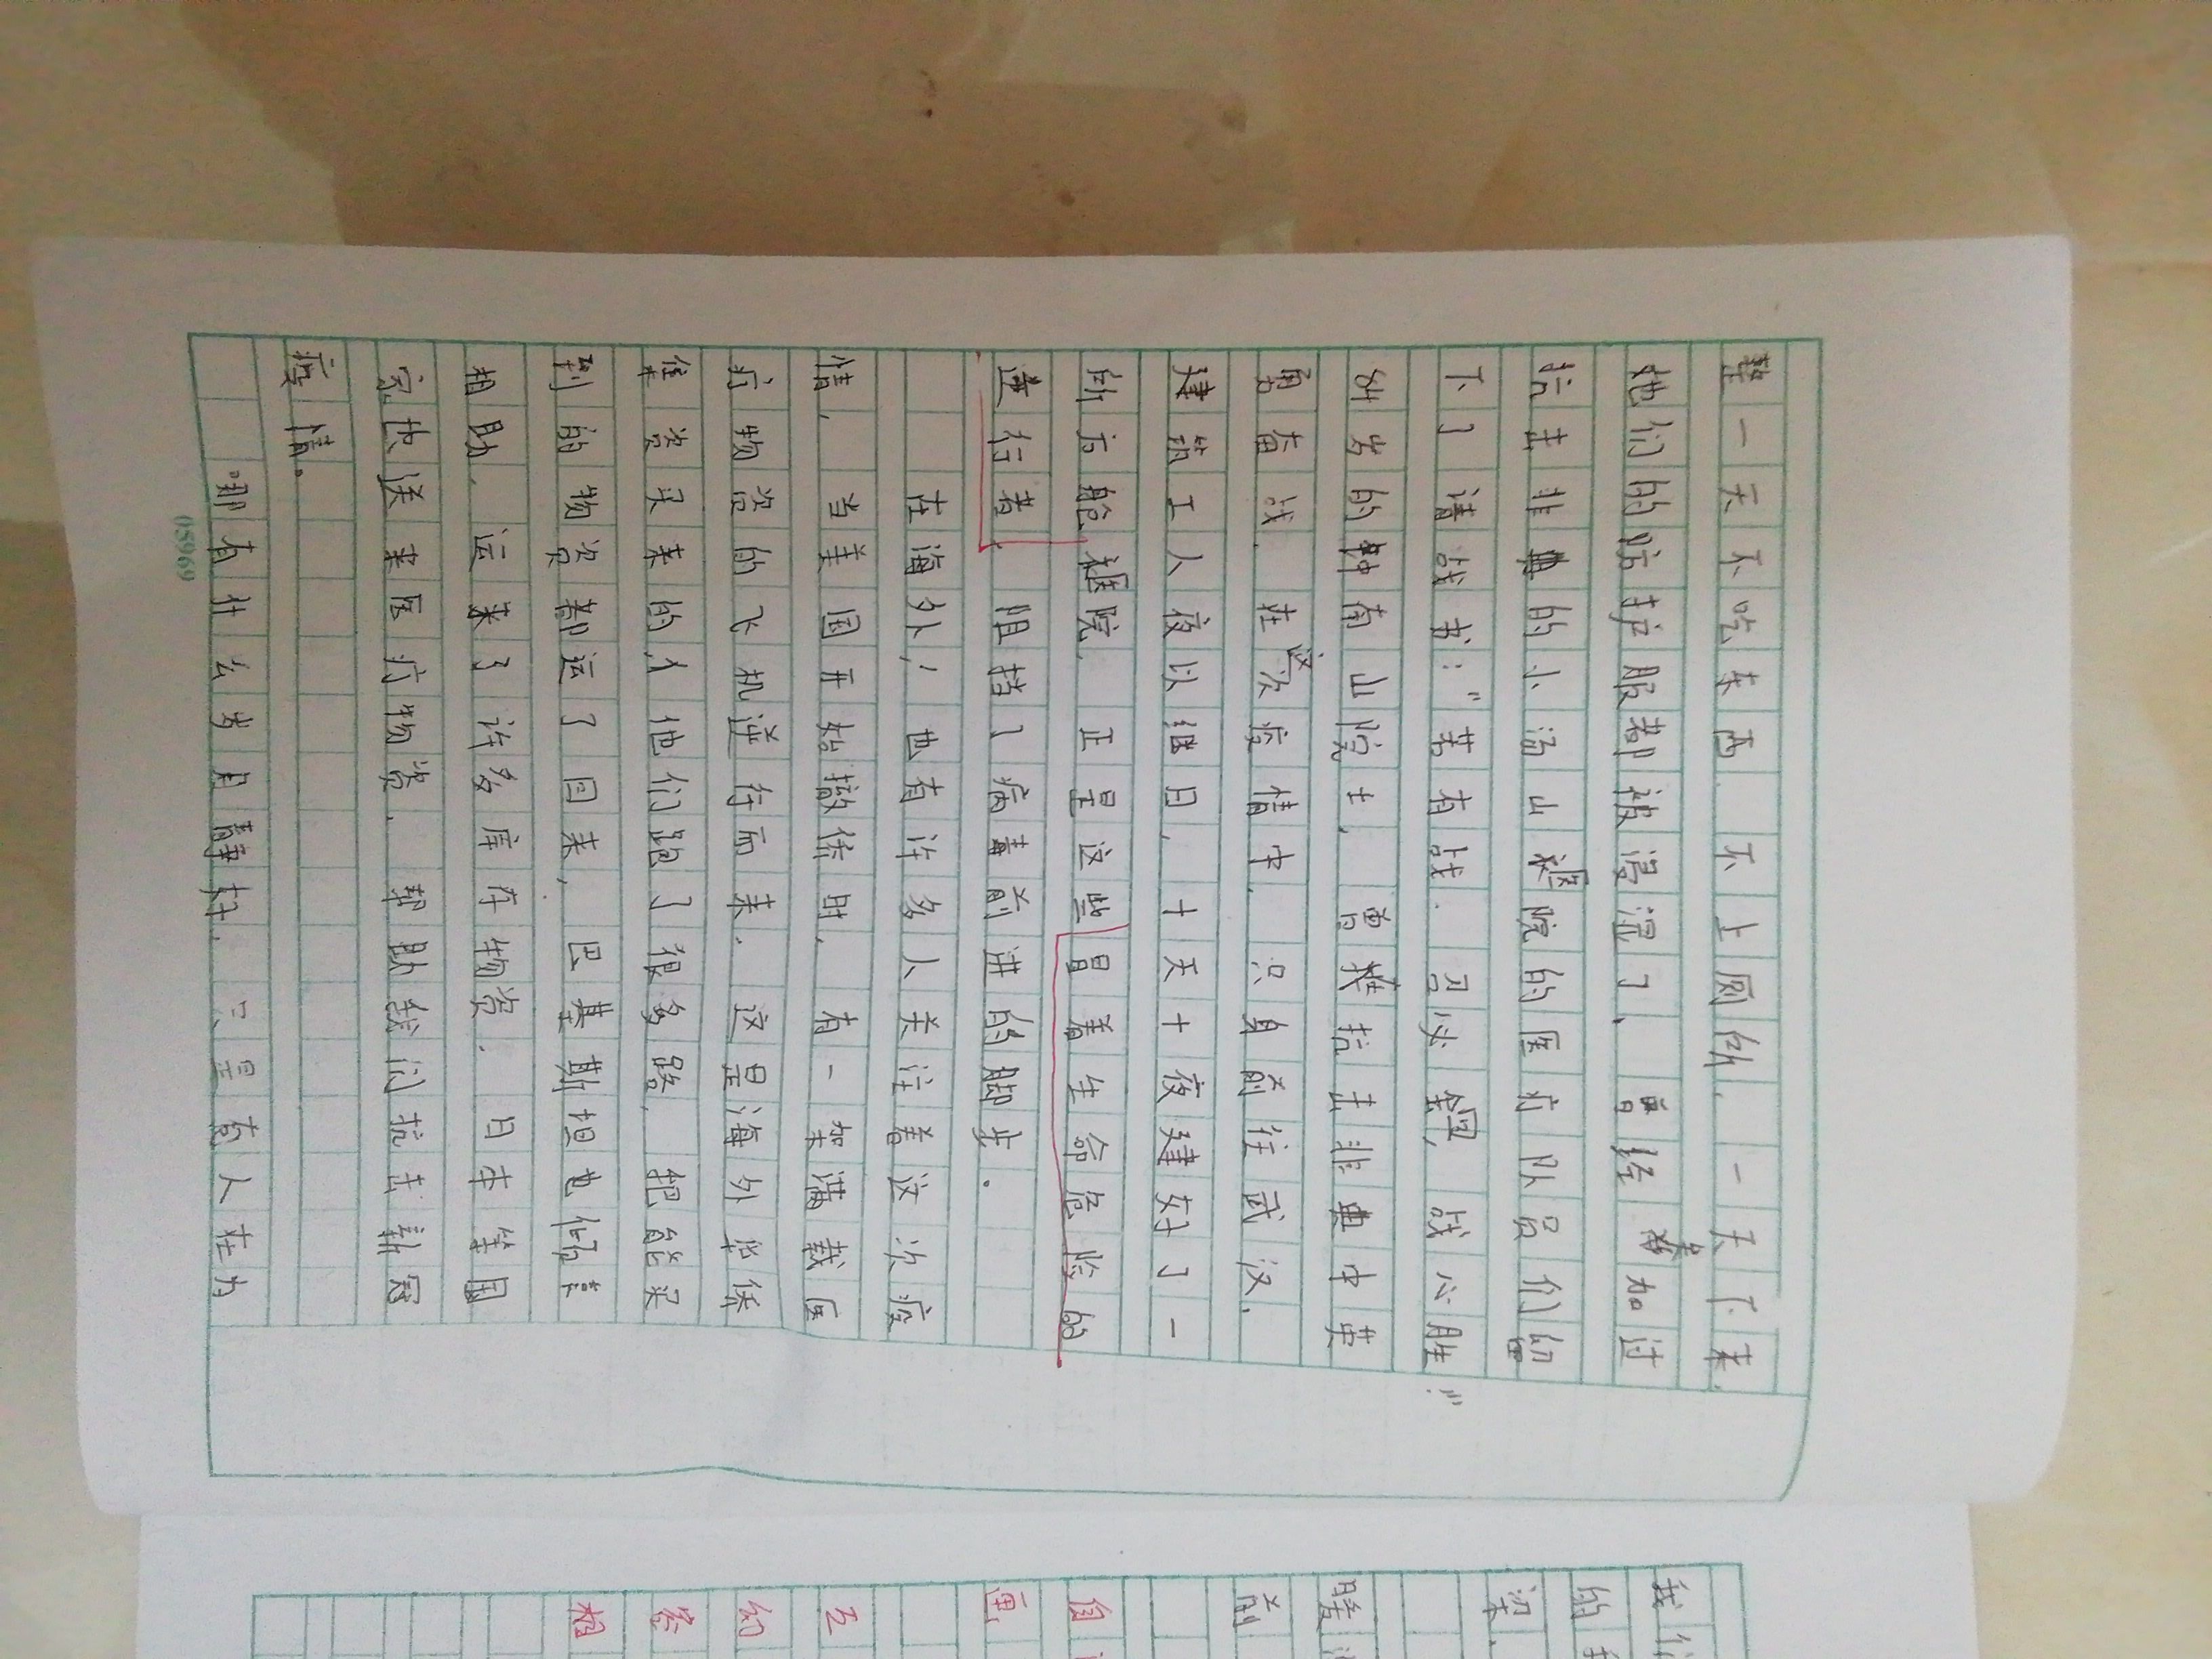 整一天不吃东西,不上厕所,一天下来,
她们的防护服都被浸湿了,曾经参加过
抗击非典的小汤山医院的医疗队员们留
下了请战书:"若有战,召必回,战必胜!"
84岁的钟南山院士,曾在抗击非典中英
勇奋战,在这次疫情中,只身前往武汉,
建筑工人夜以继日,十天十夜建好了一
所方舱医院,正是这些冒着生命危险的
逆行者,阻挡了病毒前进的脚步。
在海外,也有许多人关注着这次疫
情,当美国开始撤侨时,有一架满载医
疗物资的飞机逆行而来,这是海外华侨
集资买来的,他们跑了很多路,把能买
到的物资都运了回来,巴基斯坦也倾囊
相助,运来了许多库存物资,日本等国
家也送来医疗物资,帮助我们抗击新冠
疫情。
哪有什么岁月静好,只是有人在为
08969
我们
的
梁,
暖
前
自
画
互
幼
家
相